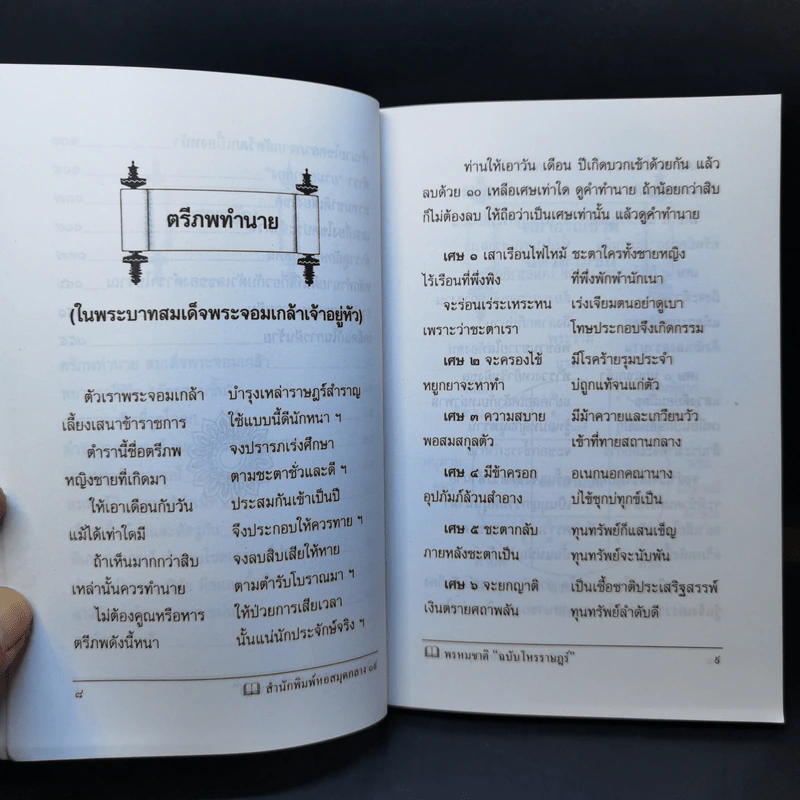 ตรีภพทำนาย
(ในพระบาทสมเด็จพระจอมเกล้าเจ้าอยู่หัว)
ตัวเราพระจอมเกล้า บำรุงเหล่าราษฎร์สำราญ
เลี้ยงเสนาข้าราชการ ใช้แบบนี้ดีนักหนา ฯ
ตำรานี้ชื่อตรีภพ จงปรารภเร่งศึกษา
หญิงชายที่เกิดมา ตามชะตาชั่วและดี ฯ
ให้เอาเดือนกับวัน ประสมกันเข้าเป็นปี
แม้ได้เท่าใดมี จึงประกอบให้ควรทาย ฯ
ถ้าเห็นมากกว่าสิบ จงลบสิบเสียให้หาย
เหล่านั้นควรทำนาย ตามตำรับโบราณมา ฯ
ไม่ต้องคูณหรือหาร ให้ป่วยการเสียเวลา
ตรีภพดังนี้หนา นั้นแน่นักประจักษ์จริง ฯ
๘ สำนักพิมพ์หอสมุดกลาง ๐๙
ท่านให้เอาวัน เดือน ปีเกิดบวกเข้าด้วยกัน แล้ว
ลบด้วย ๑๐ เหลือเศษเท่าใด ดูคำทำนาย ถ้าน้อยกว่าสิบ
ก็ไม่ต้องลบ ให้ถือว่าเป็นเศษเท่านั้น แล้วดูคำทำนาย
เศษ ๑ เสาเรือนไฟไหม้ ชะตาใครทั้งชายหญิง
ไร้เรือนที่พึ่งพิง ที่พึ่งพักพำนักเนา
จะร่อนเร่ระเหระหน เร่งเจียมตนอย่าดูเบา
เพราะว่าชะตาเรา โทษประกอบจึงเกิดกรรม
เศษ ๒ จะครองไข้ มีโรคร้ายรุมประจำ
หยูกยาจะหาทำ บ่ถูกแท้จนแก่ตัว
เศษ ๓ ความสบาย มีม้าควายและเกวียนวัว
พอสมสกุลตัว เข้าที่ทายสถานกลาง
เศษ ๔ มีข้าครอก อเนกนอกคณานาง
อุปภัมภ์ล้วนสำอาง บ่ไข้ซุกบ่ทุกข์เข็ญ
เศษ ๕ ชะตากลับ ทุนทรัพย์ก็แสนเข็ญ
ภายหลังชะตาเป็น ทุนทรัพย์จะนับพัน
เศษ ๖ จะยกญาติ เป็นเชื้อชาติประเสริฐสรรพ์
เงินตรายศถาพลัน ทุนทรัพย์ลำดับดี
พรหมชาติ "ฉบับโหรราษฎร์" ๙